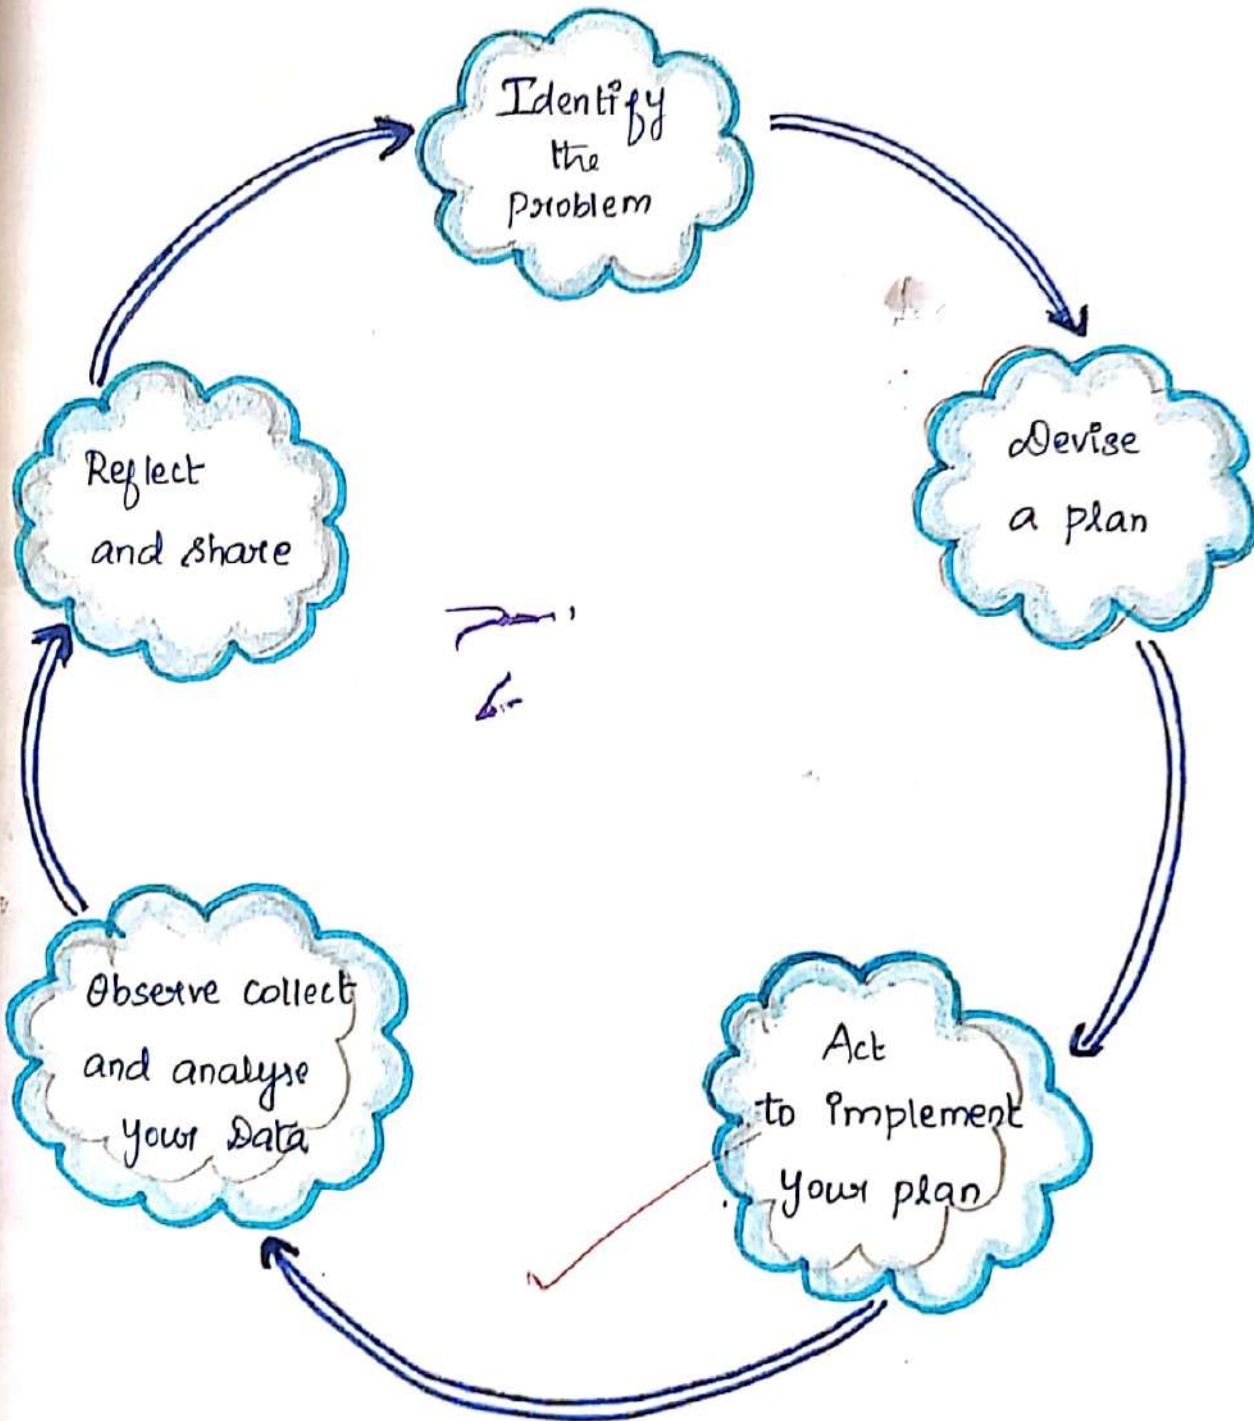 Identify
the
problem
Devise
a plan
Act
to implement
your plan
Observe collect
and analyse
your Data
Reflect
and share